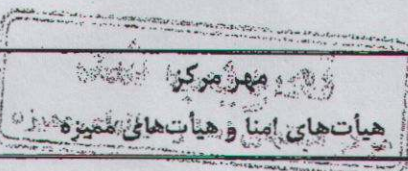 مهر مرکز
هیأت‌های امنا و هیأت‌های ممیزه